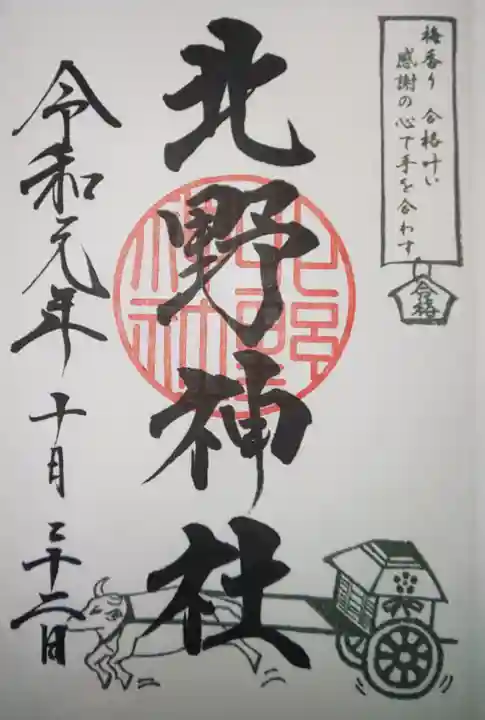 梅香り 合格叶い
感謝の心で手を合わす
合格
北野神社
令和元年十月二十二日